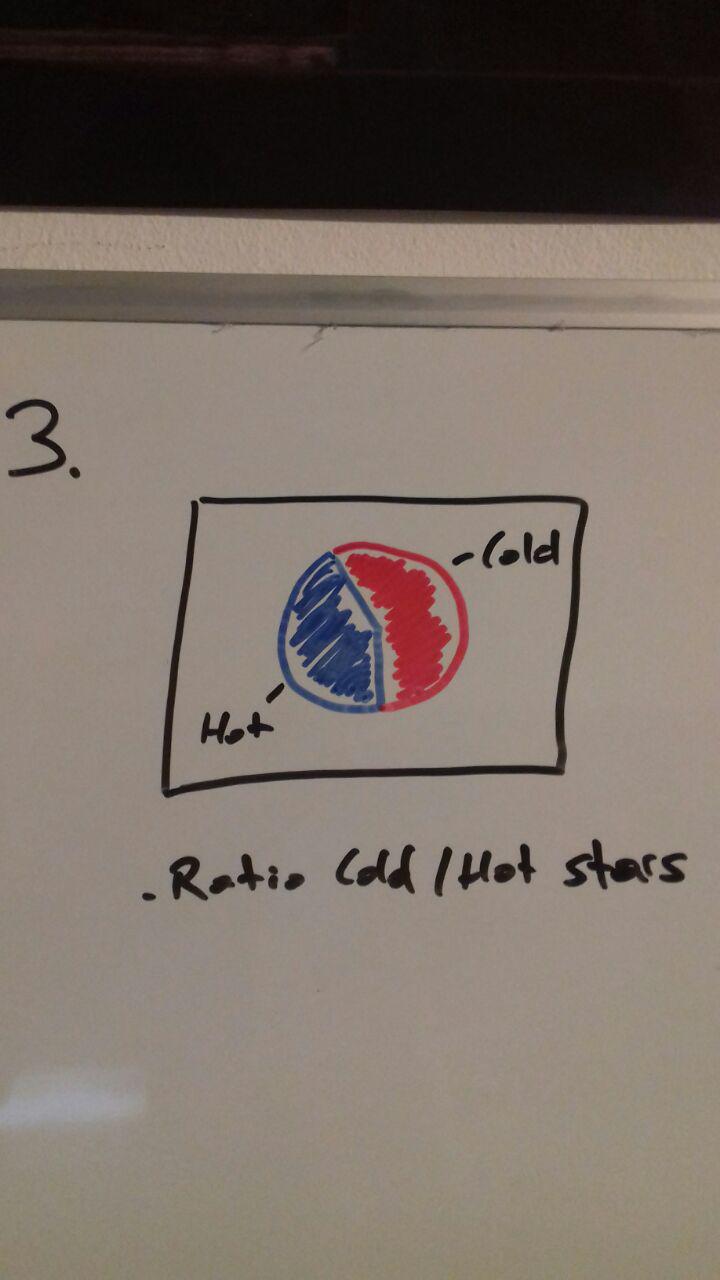 3.
- Cold
Hot -
. Ratio Cold / Hot stars